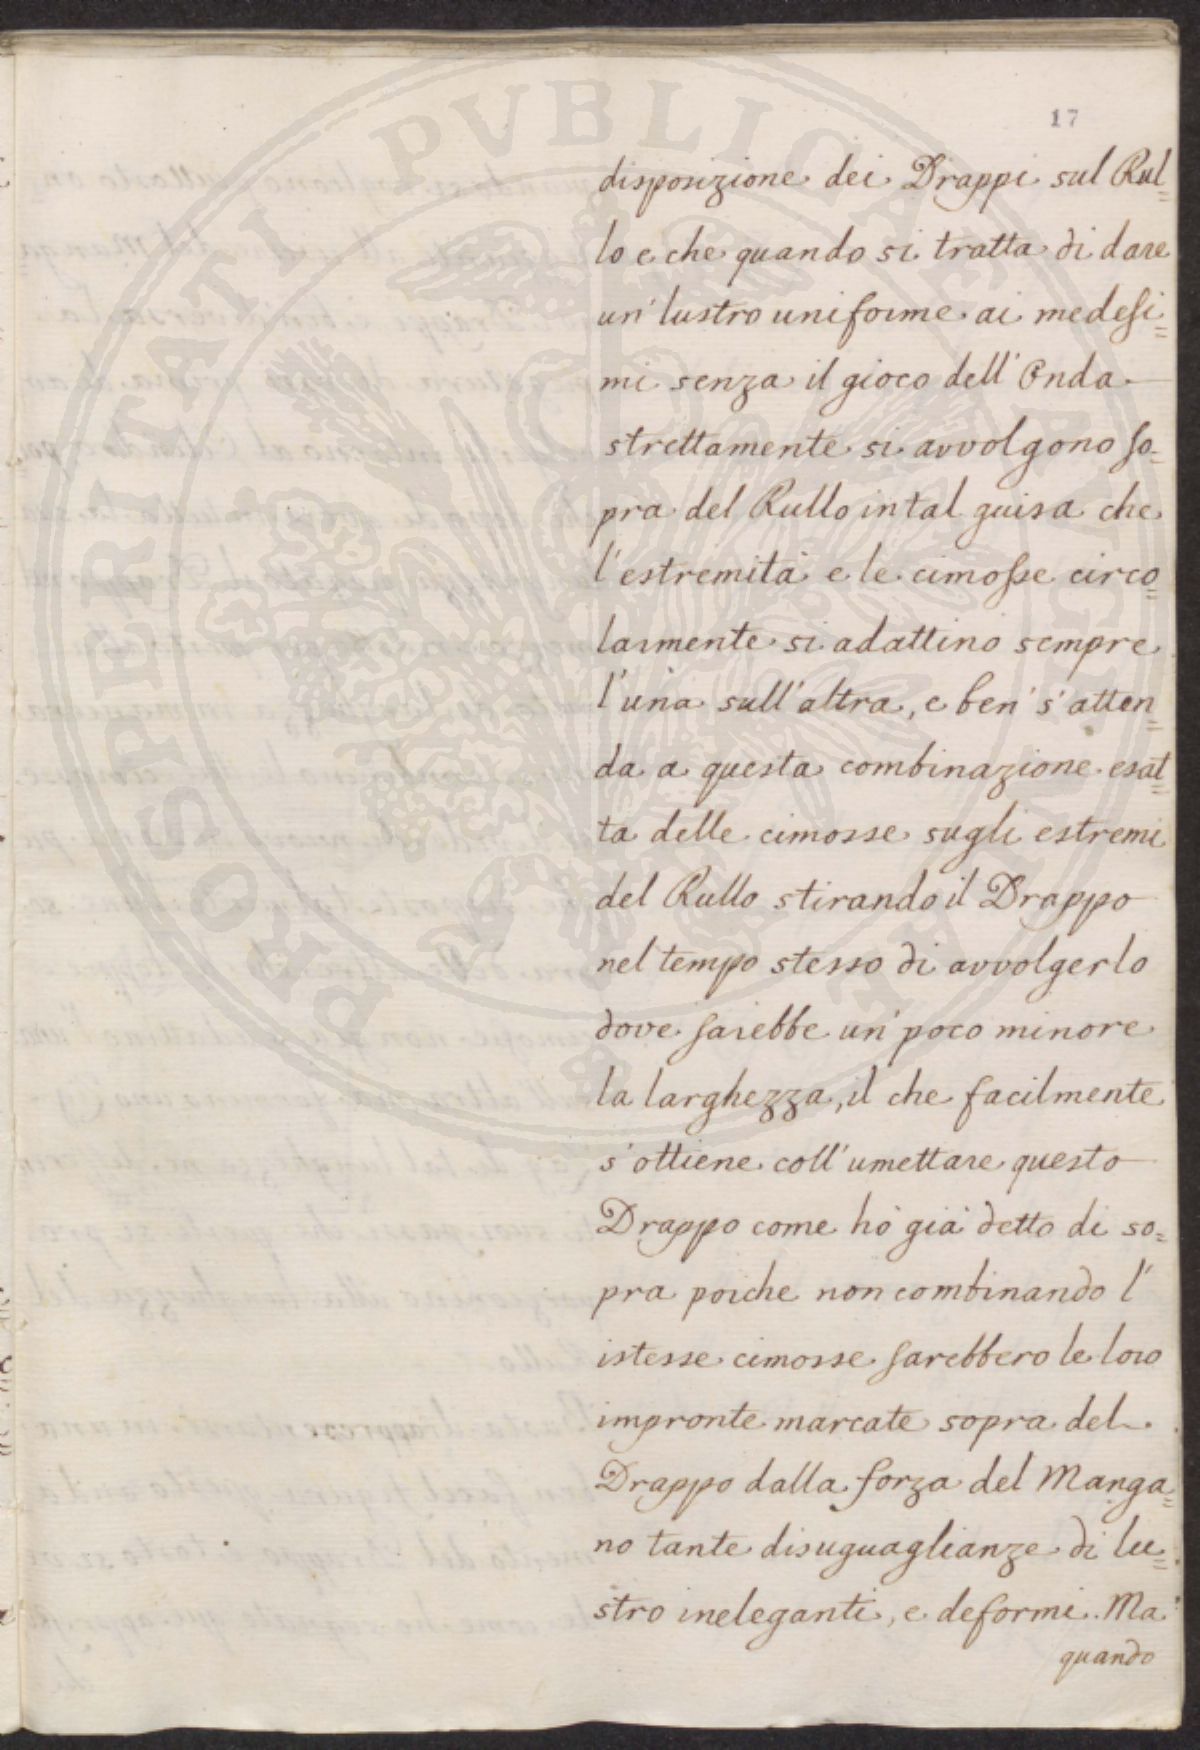 17
disposizione dei Drappi sul Rul=
lo e che quando si tratta di dare
un' lustro uniforme ai medesi=
mi senza il gioco dell' Onda
strettamente si avvolgono so=
pra del Rullo in tal guisa che
l'estremità e le cimosse circo=
larmente si adattino sempre
l'una sull'altra, e ben' s'atten=
da a questa combinazione esat=
ta delle cimosse sugli estremi
del Rullo stirando il Drappo
nel tempo stesso di avvolgerlo
dove sarebbe un' poco minore
la larghezza, il che facilmente
s'ottiene coll'umettare questo
Drappo come hò già detto di so=
pra poiche non combinando l'
istesse cimosse sarebbero le loro
impronte marcate sopra del
Drappo dalla forza del Manga=
no tante disuguaglianze di lu=
stro ineleganti, e deformi. Ma
quando
PROSPERITATI PVBLICAE AVGENDAE